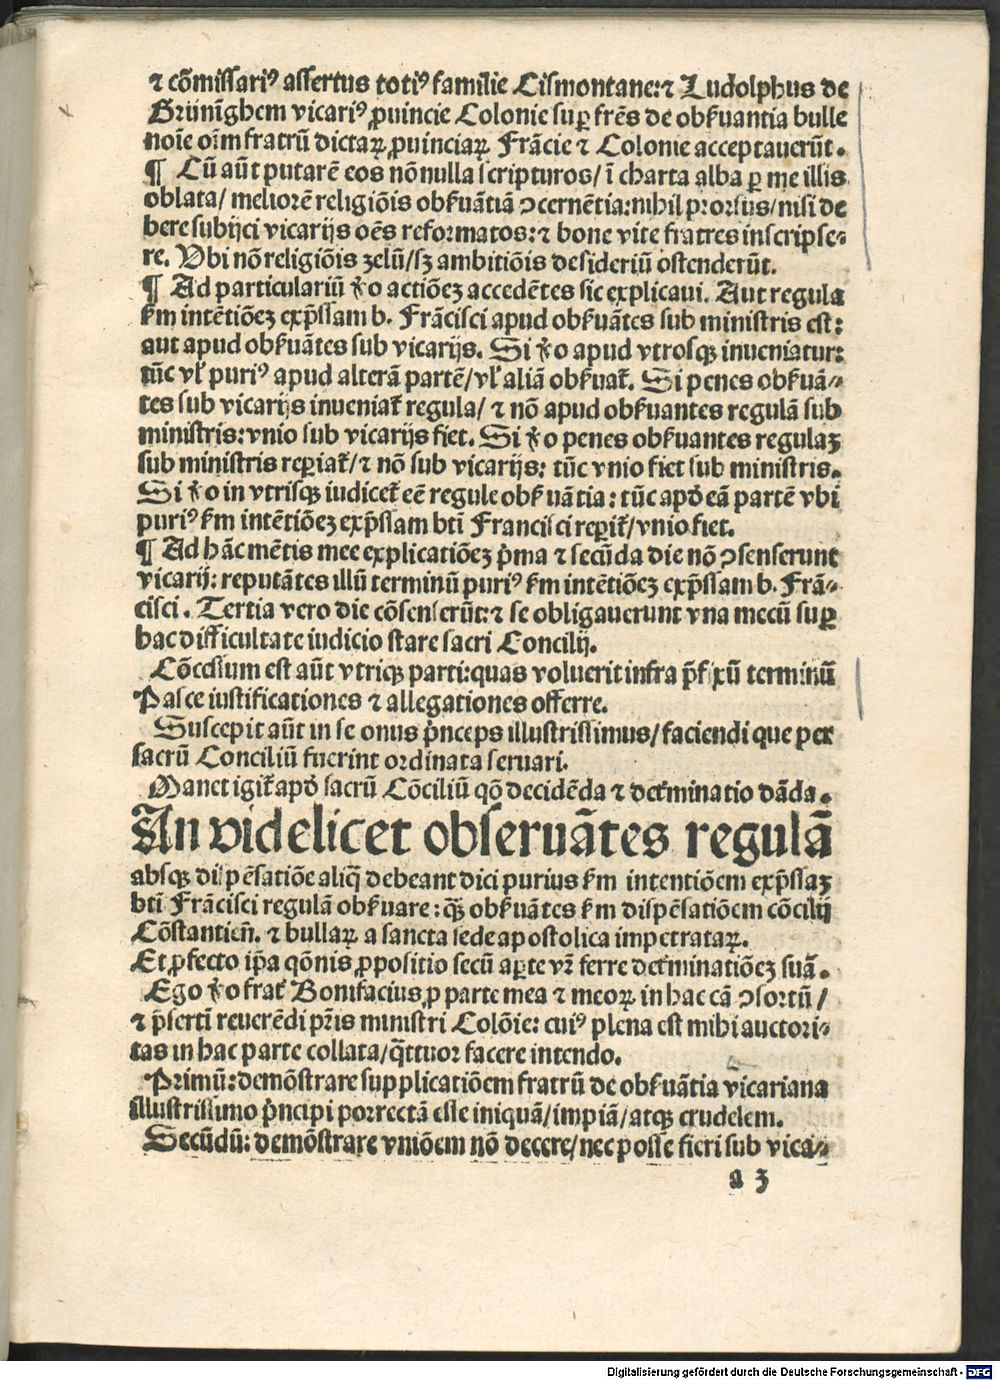 ⁊ cõmissariꝰ assertus totiꝰ familie Cismontane:⁊ Ludolphus de
Brijnĩghem vicariꝰ ꝓuincie Colonie suꝑ frẽs de obẜuantia bulle
noĩe oĩm fratrũ dictaꝝ ꝓuinciaꝝ Frãcie ⁊ Colonie acceptauerũt.
¶ Cũ aũt putarẽ eos nõnulla scripturos/ ĩ charta alba ꝑ me illis
oblata/ meliorẽ religiõis obẜuãtiã ↄcernẽtia:nihil prorsus/ nisi de
bere subijci vicarijs oẽs reformatos:⁊ bone vite fratres inscripse-
re. Ubi nõ religiõis zelũ/sꝫ ambitiõis desideriũ ostenderũt.
¶ Ad particulariũ ꝟo actiõeꝫ accedẽtes sic explicaui. Aut regula
ẜm intẽtiõeꝫ exp̃ssam b. Frãcisci apud obẜuãtes sub ministris est:
aut apud obẜuãtes sub vicarijs. Si ꝟo apud vtrosqꝫ inueniatur:
tũc vl' puriꝰ apud alterã partẽ/vl' aliã obẜuat᷑. Si penes obẜuã-
tes sub vicarijs inueniat᷑ regula/ ⁊ nõ apud obẜuantes regulã sub
ministris:vnio sub vicarijs fiet. Si ꝟo penes obẜuantes regulaꝫ
sub ministris reperiat᷑/⁊ nõ sub vicarijs: tũc vnio fiet sub ministris.
Si ꝟo in vtrisqꝫ iudicet᷑ eẽ regule obẜuãtia: tũc apđ eã partẽ vbi
puriꝰ ẜm intẽtiõeꝫ exp̃ssam bti Francisci reperit᷑/vnio fiet.
¶ Ad hãc mẽtis mee explicatiõeꝫ p̃ma ⁊ secũda die nõ ↄsenserunt
vicarij:reputãtes illũ terminũ puriꝰ ẜm intẽtiõeꝫ exp̃ssam b. Frã-
cisci. Tertia vero die cõsenserũt:⁊ se obligauerunt vna mecũ suꝑ
hac difficultate iudicio stare sacri Concilij.
Cõcessum est aũt vtriqꝫ parti:quas voluerit infra p̃fixũ terminũ
Pasce iustificationes ⁊ allegationes offerre.
Suscepit aũt in se onus p̃nceps illustrissimus/faciendi que per
sacrũ Conciliũ fuerint ordinata seruari.
Manet igit᷑ apđ sacrũ Cõciliũ qõ decidẽda ⁊ det᷑minatio dãda.
An videlicet obseruãtes regulã
absqꝫ dispẽsatiõe aliq̃ debeant dici purius ẜm intentiõem exp̃ssaꝫ
bti Frãcisci regulã obẜuare:q̃ꝫ obẜuãtes ẜm dispẽsatiõem cõcilij
Cõstantieñ. ⁊ bullaꝝ a sancta sede apostolica impetrataꝝ.
Et ꝓfecto ip̃a qõnis ꝓpositio secũ aperte vr̃ ferre det᷑minatiõeꝫ suã.
Ego ꝟo frat᷑ Bonifacius ꝓ parte mea ⁊ meoꝝ in hac cã ↄsortũ/
⁊ p̃sertĩ reuerẽdi pr̃is ministri Colõie: cuiꝰ plena est mihi auctori-
tas in hac parte collata/q̃ttuor facere intendo.
Primũ:demõstrare supplicatiõem fratrũ de obẜuãtia vicariana
illustrissimo p̃ncipi porrectã esse iniquã/impiã/atqꝫ crudelem.
Secũdũ: demõstrare vniõem nõ decere/nec posse fieri sub vica-
a 3
Digitalisierung gefördert durch die Deutsche Forschungsgemeinschaft - DFG